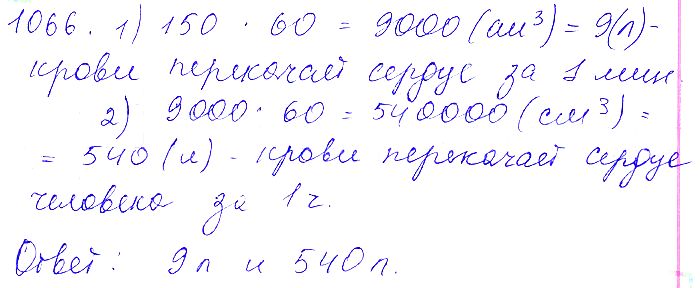 1066. 1) 150 · 60 = 9000 (см³) = 9(л) -
крови перекачает сердце за 1 мин.
2) 9000 · 60 = 540000 (см³) =
= 540 (л) - крови перекачает сердце
человека за 1 ч.
Ответ: 9л и 540л.